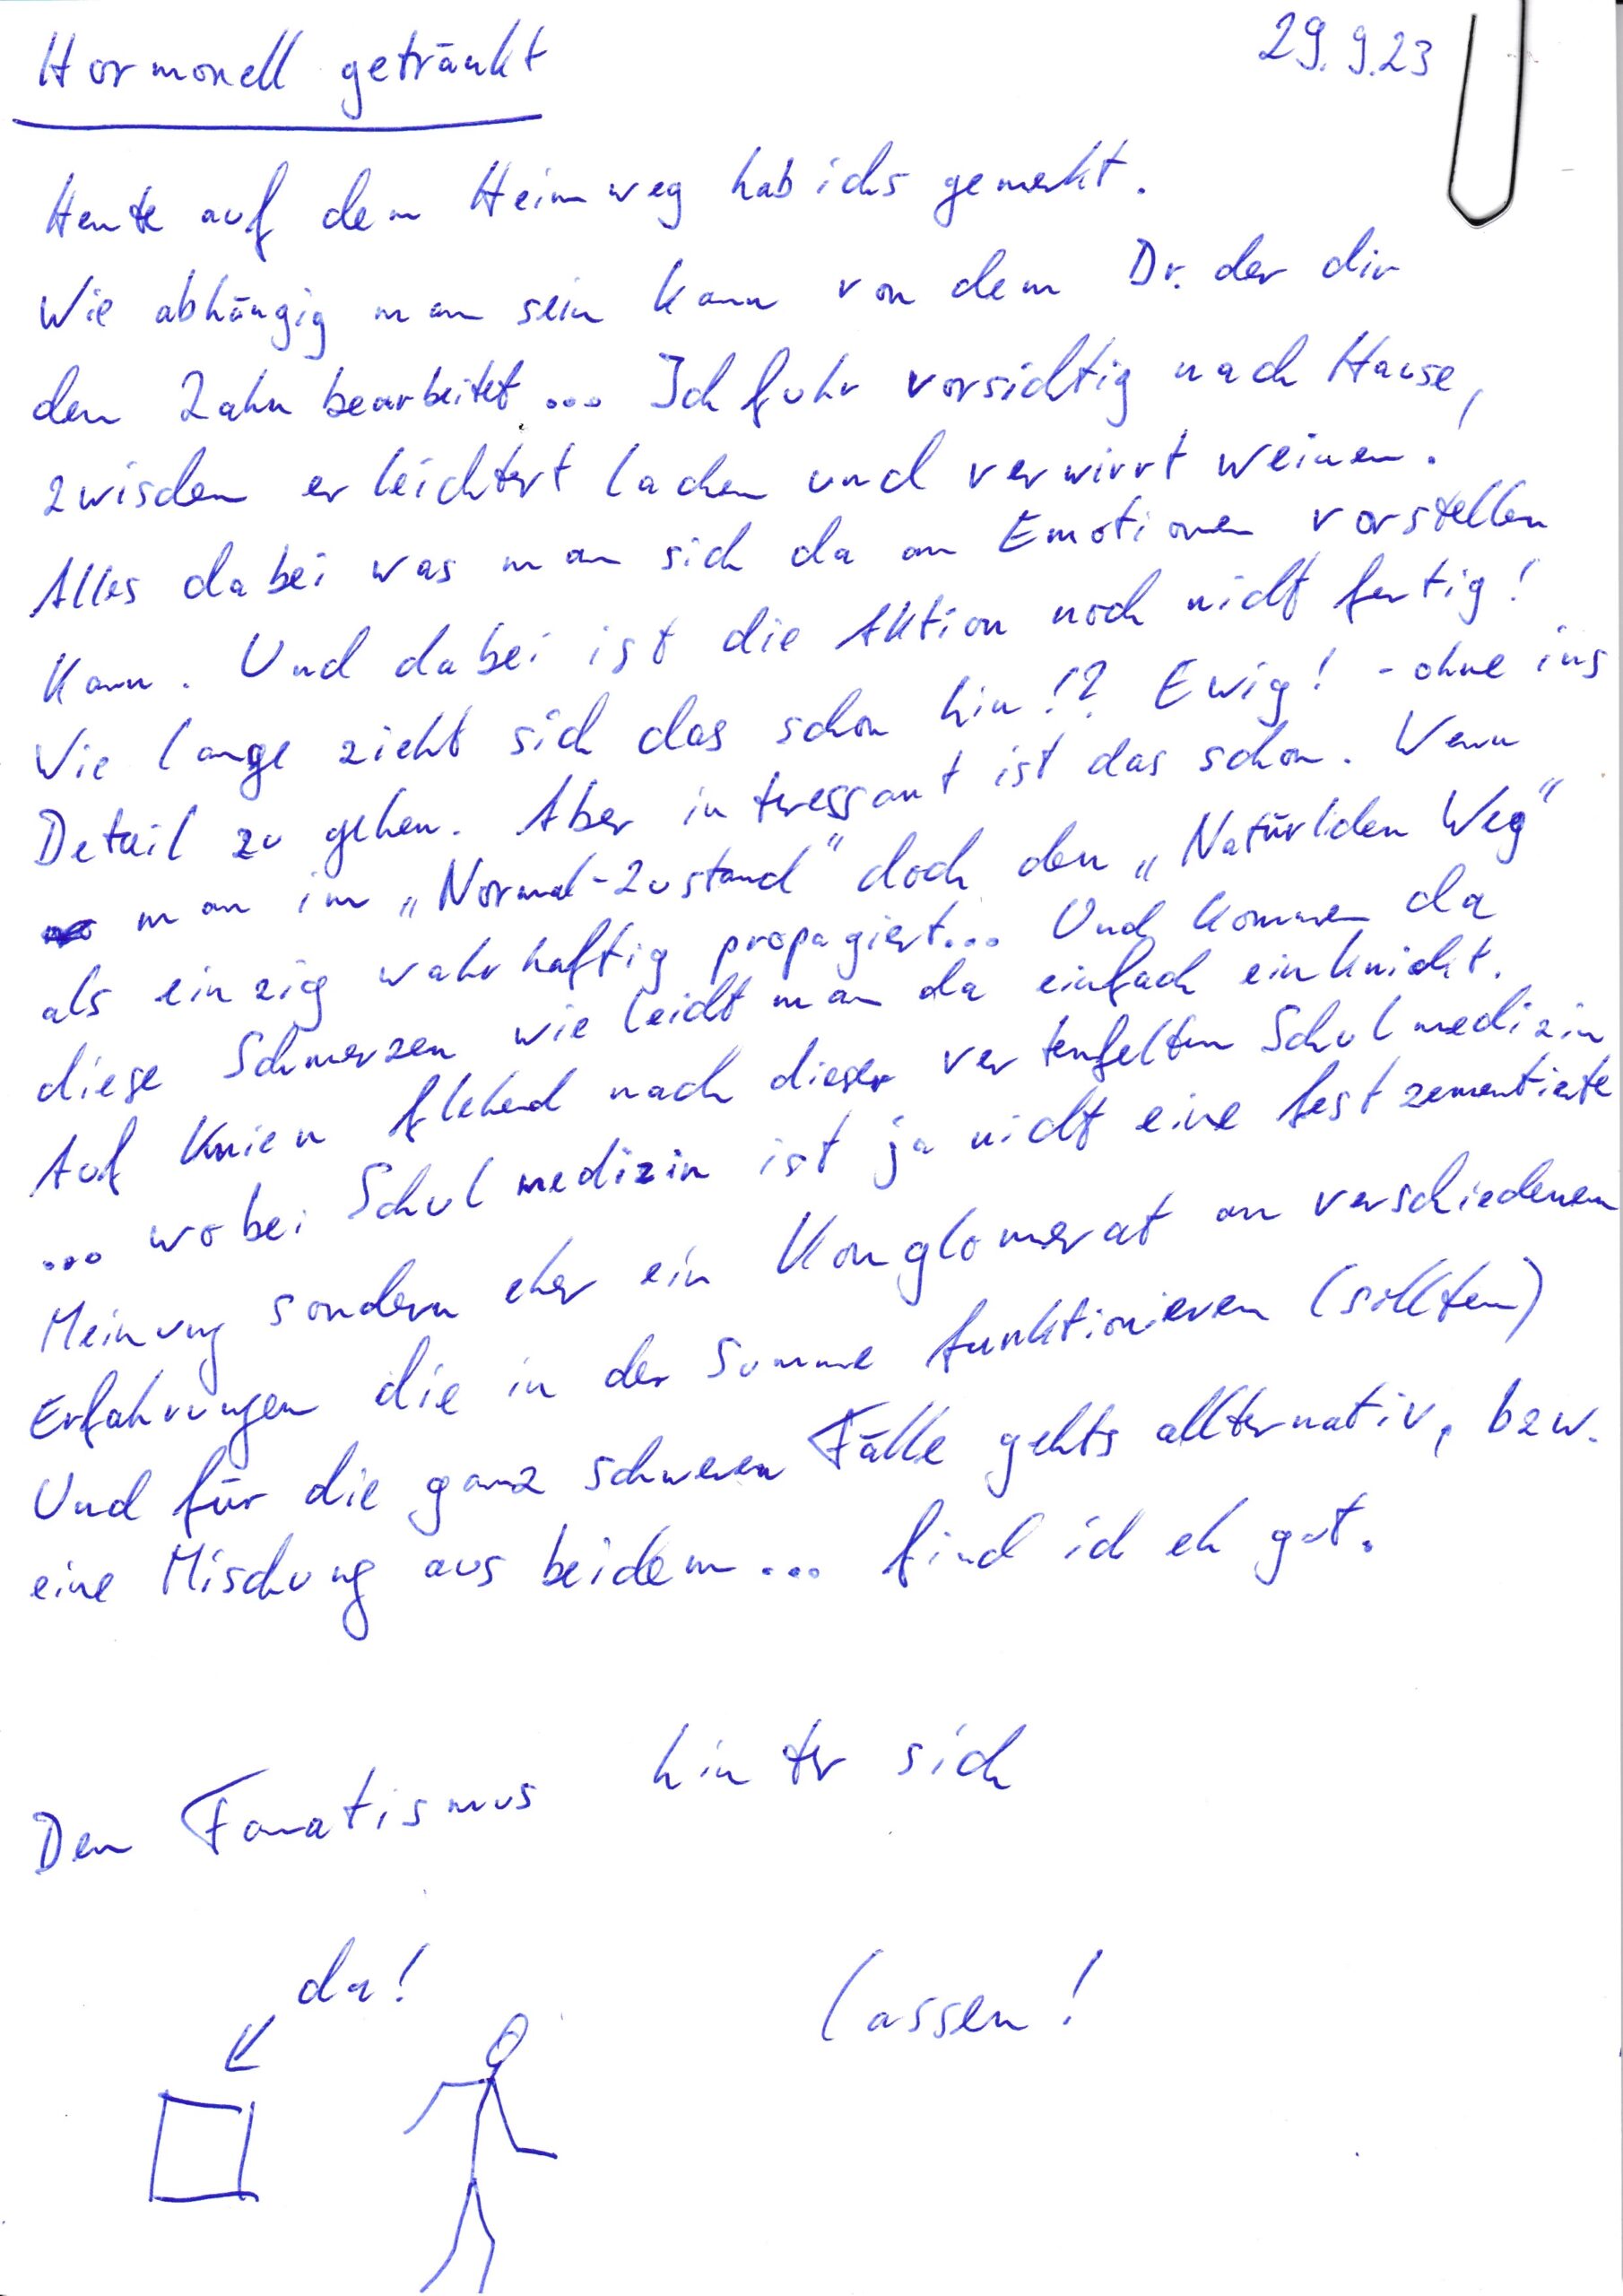 Hormonell getränkt 29.9.23
Heute auf dem Heimweg hab ichs gemerkt.
Wie abhängig man sein kann von dem Dr. der dir
den Zahn bearbeitet... Ich fuhr vorsichtig nach Hause,
zwischen erleichtert lachen und verwirrt weinen!
Alles dabei was man sich da an Emotionen vorstellen
kann. Und dabei ist die Aktion noch nicht fertig!
Wie lange zieht sich das schon hin!? Ewig! - ohne ins
Detail zu gehen. Aber interessant ist das schon. Wenn
man im „Normal-Zustand" doch den „Natürlichen Weg"
als einzig wahrhaftig propagiert... Und kommen da
diese Schmerzen wie leicht man da einfach einknickt.
Auf Knien flehend nach dieser verteufelten Schulmedizin
... wobei Schulmedizin ist ja nicht eine fest zementierte
Meinung sondern eher ein Konglomerat an verschiedenen
Erfahrungen die in der Summe funktionieren (sollten)
Und für die ganz schweren Fälle gehts allternativ, bzw.
eine Mischung aus beidem... find ich eh gut.
Den Fanatismus hinter sich
da!
lassen!